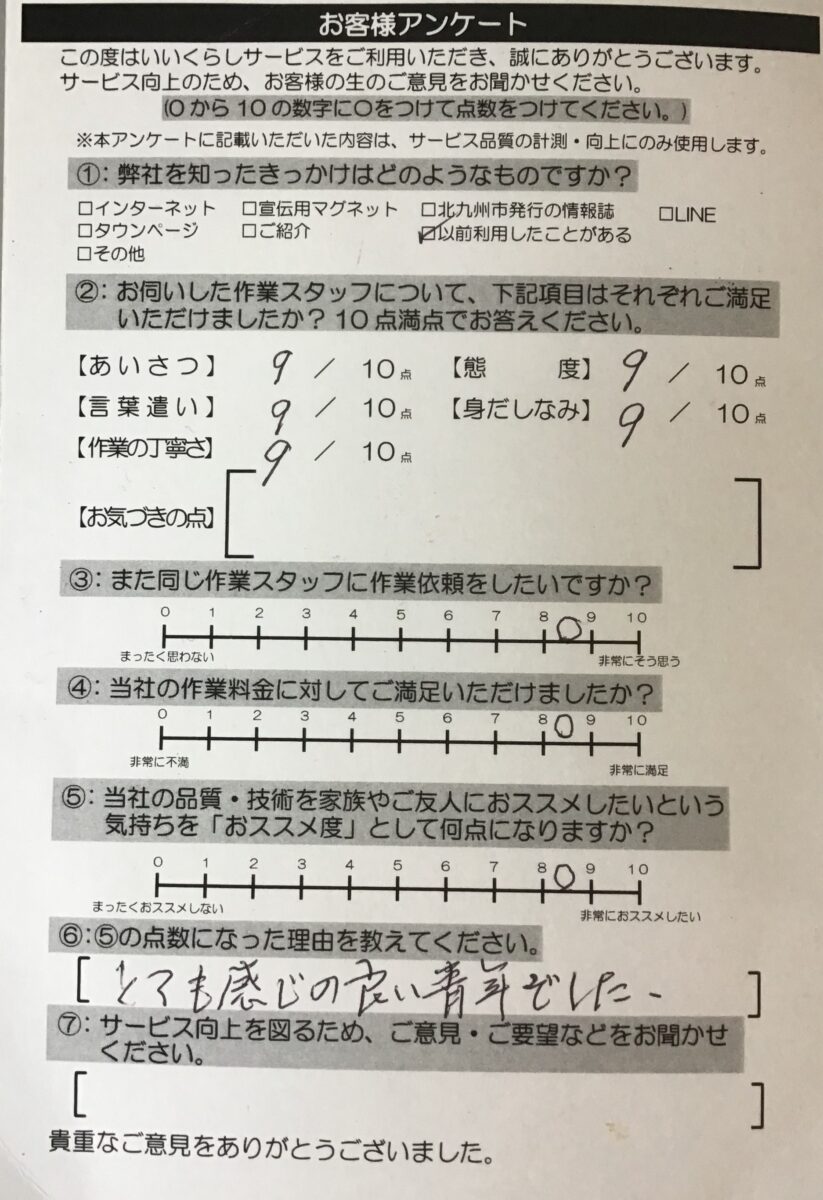 お客様アンケート
この度はいいくらしサービスをご利用いただき、誠にありがとうございます。
サービス向上のため、お客様の生のご意見をお聞かせください。
(0から10の数字に〇をつけて点数をつけてください。)
※本アンケートに記載いただいた内容は、サービス品質の計測・向上にのみ使用します。
①：弊社を知ったきっかけはどのようなものですか？
□インターネット □宣伝用マグネット □北九州市発行の情報誌 □LINE
□タウンページ □ご紹介 ☑以前利用したことがある
□その他
②：お伺いした作業スタッフについて、下記項目はそれぞれご満足
いただけましたか？10点満点でお答えください。
【あいさつ】 9 / 10点 【態 度】 9 / 10点
【言葉遣い】 9 / 10点 【身だしなみ】 9 / 10点
【作業の丁寧さ】 9 / 10点
【お気づきの点】
③：また同じ作業スタッフに作業依頼をしたいですか？
0 1 2 3 4 5 6 7 8 9 10
まったく思わない 非常にそう思う
④：当社の作業料金に対してご満足いただけましたか？
0 1 2 3 4 5 6 7 8 9 10
非常に不満 非常に満足
⑤：当社の品質・技術を家族やご友人におススメしたいという
気持ちを「おススメ度」として何点になりますか？
0 1 2 3 4 5 6 7 8 9 10
まったくおススメしない 非常におススメしたい
⑥：⑤の点数になった理由を教えてください。
[とても感じの良い青年でした、]
⑦：サービス向上を図るため、ご意見・ご要望などをお聞かせ
ください。
貴重なご意見をありがとうございました。